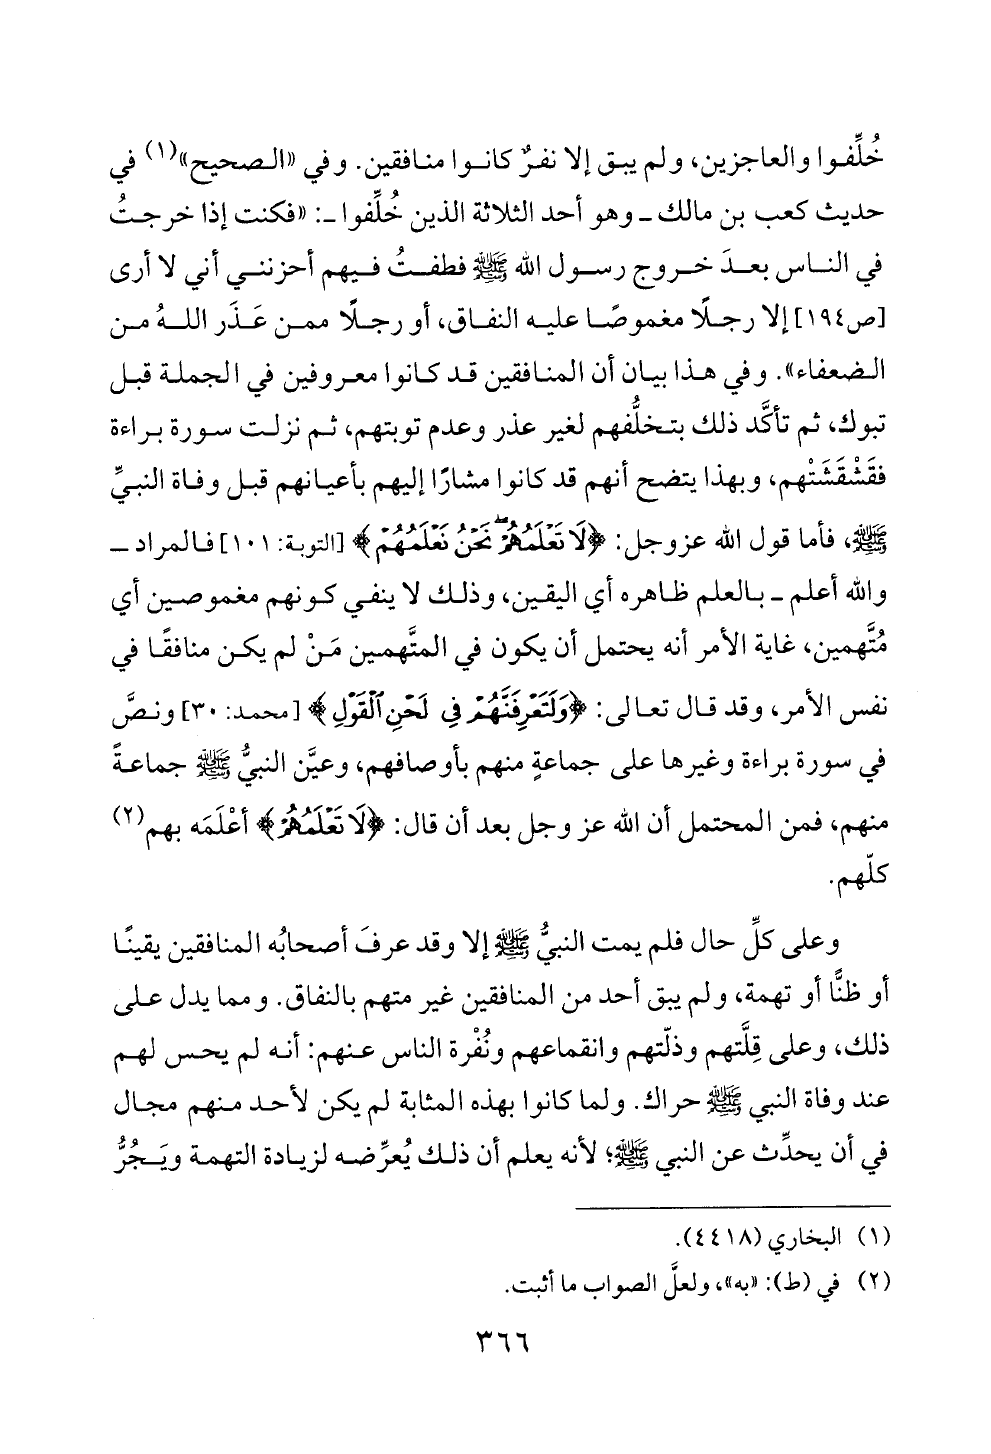 خُلِّفوا والعاجزين، ولم يبق إلا نفرٌ كانوا منافقين. وفي «الصحيح»(١) في
حديث كعب بن مالك ـ وهو أحد الثلاثة الذين خُلِّفوا ـ: «فكنت إذا خرجتُ
في الناس بعدَ خروج رسول الله ﷺ فطفتُ فيهم أحزنني أني لا أرى
[ص١٩٤] إلا رجلًا مغموصًا عليه النفاق، أو رجلًا ممن عَذَر اللهُ من
الضعفاء». وفي هذا بيان أن المنافقين قد كانوا معروفين في الجملة قبل
تبوك، ثم تأكَّد ذلك بتخلُّفهم لغير عذر وعدم توبتهم، ثم نزلت سورة براءة
فقَشْقَشَتْهم، وبهذا يتضح أنهم قد كانوا مشارًا إليهم بأعيانهم قبل وفاة النبيِّ
ﷺ، فأما قول الله عزوجل: ﴿لَا تَعْلَمُهُمْ ۖ نَحْنُ نَعْلَمُهُمْ﴾ [التوبة: ١٠١] فالمراد ـ
والله أعلم ـ بالعلم ظاهره أي اليقين، وذلك لا ينفي كونهم مغموصين أي
مُتَّهمين، غاية الأمر أنه يحتمل أن يكون في المتَّهمين مَنْ لم يكن منافقًا في
نفس الأمر، وقد قال تعالى: ﴿وَلَتَعْرِفَنَّهُمْ فِي لَحْنِ ٱلْقَوْلِ﴾ [محمد: ٣٠] ونصَّ
في سورة براءة وغيرها على جماعةٍ منهم بأوصافهم، وعيَّن النبيُّ ﷺ جماعةً
منهم، فمن المحتمل أن الله عز وجل بعد أن قال: ﴿لَا تَعْلَمُهُمْ﴾ أعْلَمَه بهم(٢)
كلّهم.
وعلى كلِّ حال فلم يمت النبيُّ ﷺ إلا وقد عرفَ أصحابُه المنافقين يقينًا
أو ظنًّا أو تهمة، ولم يبق أحد من المنافقين غير متهم بالنفاق. ومما يدل على
ذلك، وعلى قِلَّتهم وذلّتهم وانقماعهم ونُفْرة الناس عنهم: أنه لم يحس لهم
عند وفاة النبي ﷺ حراك. ولما كانوا بهذه المثابة لم يكن لأحد منهم مجال
في أن يحدِّث عن النبي ﷺ؛ لأنه يعلم أن ذلك يُعرِّضه لزيادة التهمة ويَجُرُّ
(١) البخاري (٤٤١٨).
(٢) في (ط): «به»، ولعلَّ الصواب ما أثبت.
٣٦٦